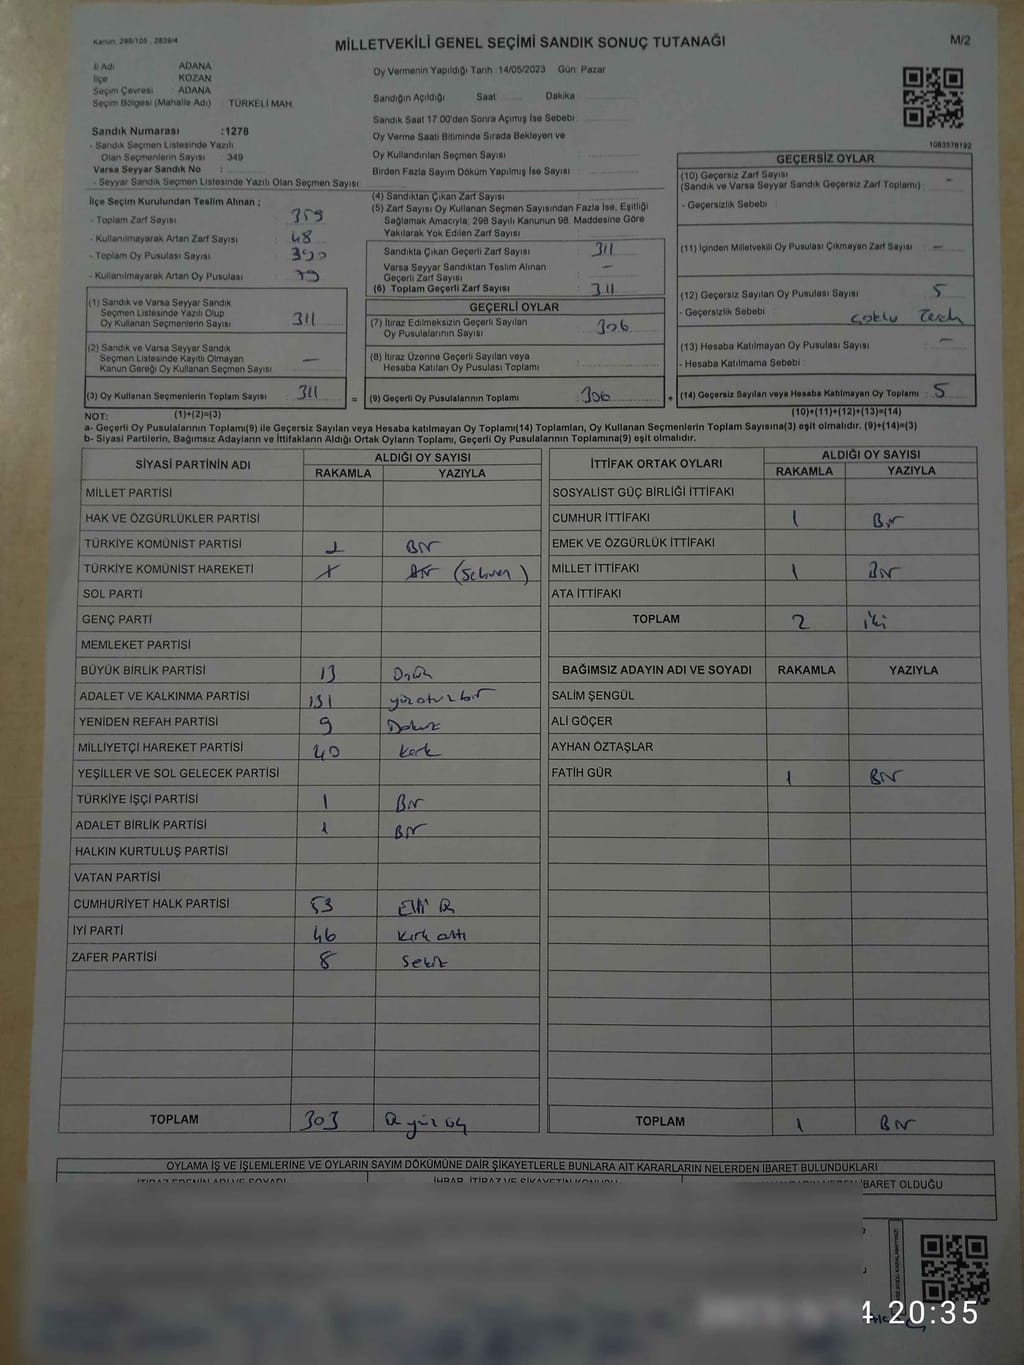 Kanun: 298/105 , 2839/4
MİLLETVEKİLİ GENEL SEÇİMİ SANDIK SONUÇ TUTANAĞI
M/2
İl Adı ADANA
İlçe KOZAN
Seçim Çevresi : ADANA
Seçim Bölgesi (Mahalle Adı) : TÜRKELİ MAH.
Sandık Numarası :1278
- Sandık Seçmen Listesinde Yazılı
Olan Seçmenlerin Sayısı : 349
Varsa Seyyar Sandık No :
- Seyyar Sandık Seçmen Listesinde Yazılı Olan Seçmen Sayısı:
Oy Vermenin Yapıldığı Tarih :14/05/2023 Gün: Pazar
Sandığın Açıldığı Saat Dakika
Sandık Saat 17.00'den Sonra Açımış İse Sebebi:
Oy Verme Saati Bitiminde Sırada Bekleyen ve
Oy Kullandırılan Seçmen Sayısı :
Birden Fazla Sayım Döküm Yapılmış İse Sayısı :
1083578192
İlçe Seçim Kurulundan Teslim Alınan ;
- Toplam Zarf Sayısı : 359
- Kullanılmayarak Artan Zarf Sayısı : 48
- Toplam Oy Pusulası Sayısı : 390
- Kullanılmayarak Artan Oy Pusulası : 79
(1) Sandık ve Varsa Seyyar Sandık
Seçmen Listesinde Yazılı Olup
Oy Kullanan Seçmenlerin Sayısı : 311
(2) Sandık ve Varsa Seyyar Sandık
Seçmen Listesinde Kayıtlı Olmayan
Kanun Gereği Oy Kullanan Seçmen Sayısı : —
(3) Oy Kullanan Seçmenlerin Toplam Sayısı : 311
(4) Sandıktan Çıkan Zarf Sayısı :
(5) Zarf Sayısı Oy Kullanan Seçmen Sayısından Fazla İse, Eşitliği
Sağlamak Amacıyla; 298 Sayılı Kanunun 98. Maddesine Göre
Yakılarak Yok Edilen Zarf Sayısı :
Sandıkta Çıkan Geçerli Zarf Sayısı : 311
Varsa Seyyar Sandıktan Teslim Alınan
Geçerli Zarf Sayısı : —
(6) Toplam Geçerli Zarf Sayısı : 311
GEÇERLİ OYLAR
(7) İtiraz Edilmeksizin Geçerli Sayılan
Oy Pusulalarının Sayısı : 306
(8) İtiraz Üzerine Geçerli Sayılan veya
Hesaba Katılan Oy Pusulası Toplamı :
= (9) Geçerli Oy Pusulalarının Toplamı : 306 +
GEÇERSİZ OYLAR
(10) Geçersiz Zarf Sayısı : —
(Sandık ve Varsa Seyyar Sandık Geçersiz Zarf Toplamı)
- Geçersizlik Sebebi :
(11) İçinden Milletvekili Oy Pusulası Çıkmayan Zarf Sayısı : —
(12) Geçersiz Sayılan Oy Pusulası Sayısı : 5
- Geçersizlik Sebebi : Çoklu Tercih
(13) Hesaba Katılmayan Oy Pusulası Sayısı : —
- Hesaba Katılmama Sebebi :
(14) Geçersiz Sayılan veya Hesaba Katılmayan Oy Toplamı : 5
NOT: (1)+(2)=(3) (10)+(11)+(12)+(13)=(14)
a- Geçerli Oy Pusulalarının Toplamı(9) ile Geçersiz Sayılan veya Hesaba katılmayan Oy Toplamı(14) Toplamları, Oy Kullanan Seçmenlerin Toplam Sayısına(3) eşit olmalıdır. (9)+(14)=(3)
b- Siyasi Partilerin, Bağımsız Adayların ve İttifakların Aldığı Ortak Oyların Toplamı, Geçerli Oy Pusulalarının Toplamına(9) eşit olmalıdır.
SİYASİ PARTİNİN ADI ALDIĞI OY SAYISI
RAKAMLA YAZIYLA
MİLLET PARTİSİ
HAK VE ÖZGÜRLÜKLER PARTİSİ
TÜRKİYE KOMÜNİST PARTİSİ 1 Bir
TÜRKİYE KOMÜNİST HAREKETİ (Sehven)
SOL PARTİ
GENÇ PARTİ
MEMLEKET PARTİSİ
BÜYÜK BİRLİK PARTİSİ 13 Onüç
ADALET VE KALKINMA PARTİSİ 131 yüzotuzbir
YENİDEN REFAH PARTİSİ 9 Dokuz
MİLLİYETÇİ HAREKET PARTİSİ 40 Kırk
YEŞİLLER VE SOL GELECEK PARTİSİ
TÜRKİYE İŞÇİ PARTİSİ 1 Bir
ADALET BİRLİK PARTİSİ 1 Bir
HALKIN KURTULUŞ PARTİSİ
VATAN PARTİSİ
CUMHURİYET HALK PARTİSİ 53 Elli Üç
İYİ PARTİ 46 Kırk altı
ZAFER PARTİSİ 8 Sekiz
TOPLAM 303 Üçyüz üç
İTTİFAK ORTAK OYLARI ALDIĞI OY SAYISI
RAKAMLA YAZIYLA
SOSYALİST GÜÇ BİRLİĞİ İTTİFAKI
CUMHUR İTTİFAKI 1 Bir
EMEK VE ÖZGÜRLÜK İTTİFAKI
MİLLET İTTİFAKI 1 Bir
ATA İTTİFAKI
TOPLAM 2 iki
BAĞIMSIZ ADAYIN ADI VE SOYADI RAKAMLA YAZIYLA
SALİM ŞENGÜL
ALİ GÖÇER
AYHAN ÖZTAŞLAR
FATİH GÜR 1 Bir
TOPLAM 1 Bir
OYLAMA İŞ VE İŞLEMLERİNE VE OYLARIN SAYIM DÖKÜMÜNE DAİR ŞİKAYETLERLE BUNLARA AİT KARARLARIN NELERDEN İBARET BULUNDUKLARI
İBARET OLDUĞU
4 20:35